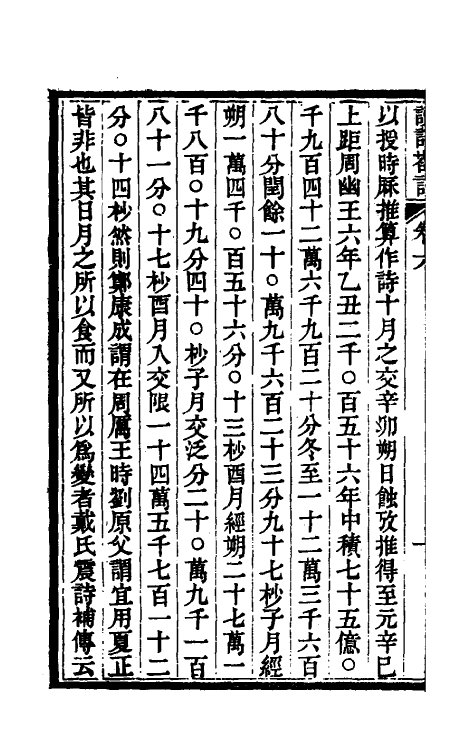 以授時厤推算作詩十月之交辛卯朔日蝕攷推得至元辛巳
上距周幽王六年乙丑二千〇百五十六年中積七十五億〇
千九百四十二萬六千九百二十分冬至一十二萬三千六百
八十分閏餘一十〇萬九千六百二十三分九十七秒子月經
朔一萬四千〇百五十六分〇十三秒酉月經朔二十七萬一
千八百〇十九分四十〇秒子月交泛分二十〇萬九千一百
八十一分〇十七秒酉月入交限一十四萬五千七百一十二
分〇十四秒然則鄭康成謂在周厲王時劉原父謂宜用夏正
皆非也其日月之所以食而又所以爲變者戴氏震詩補傳云